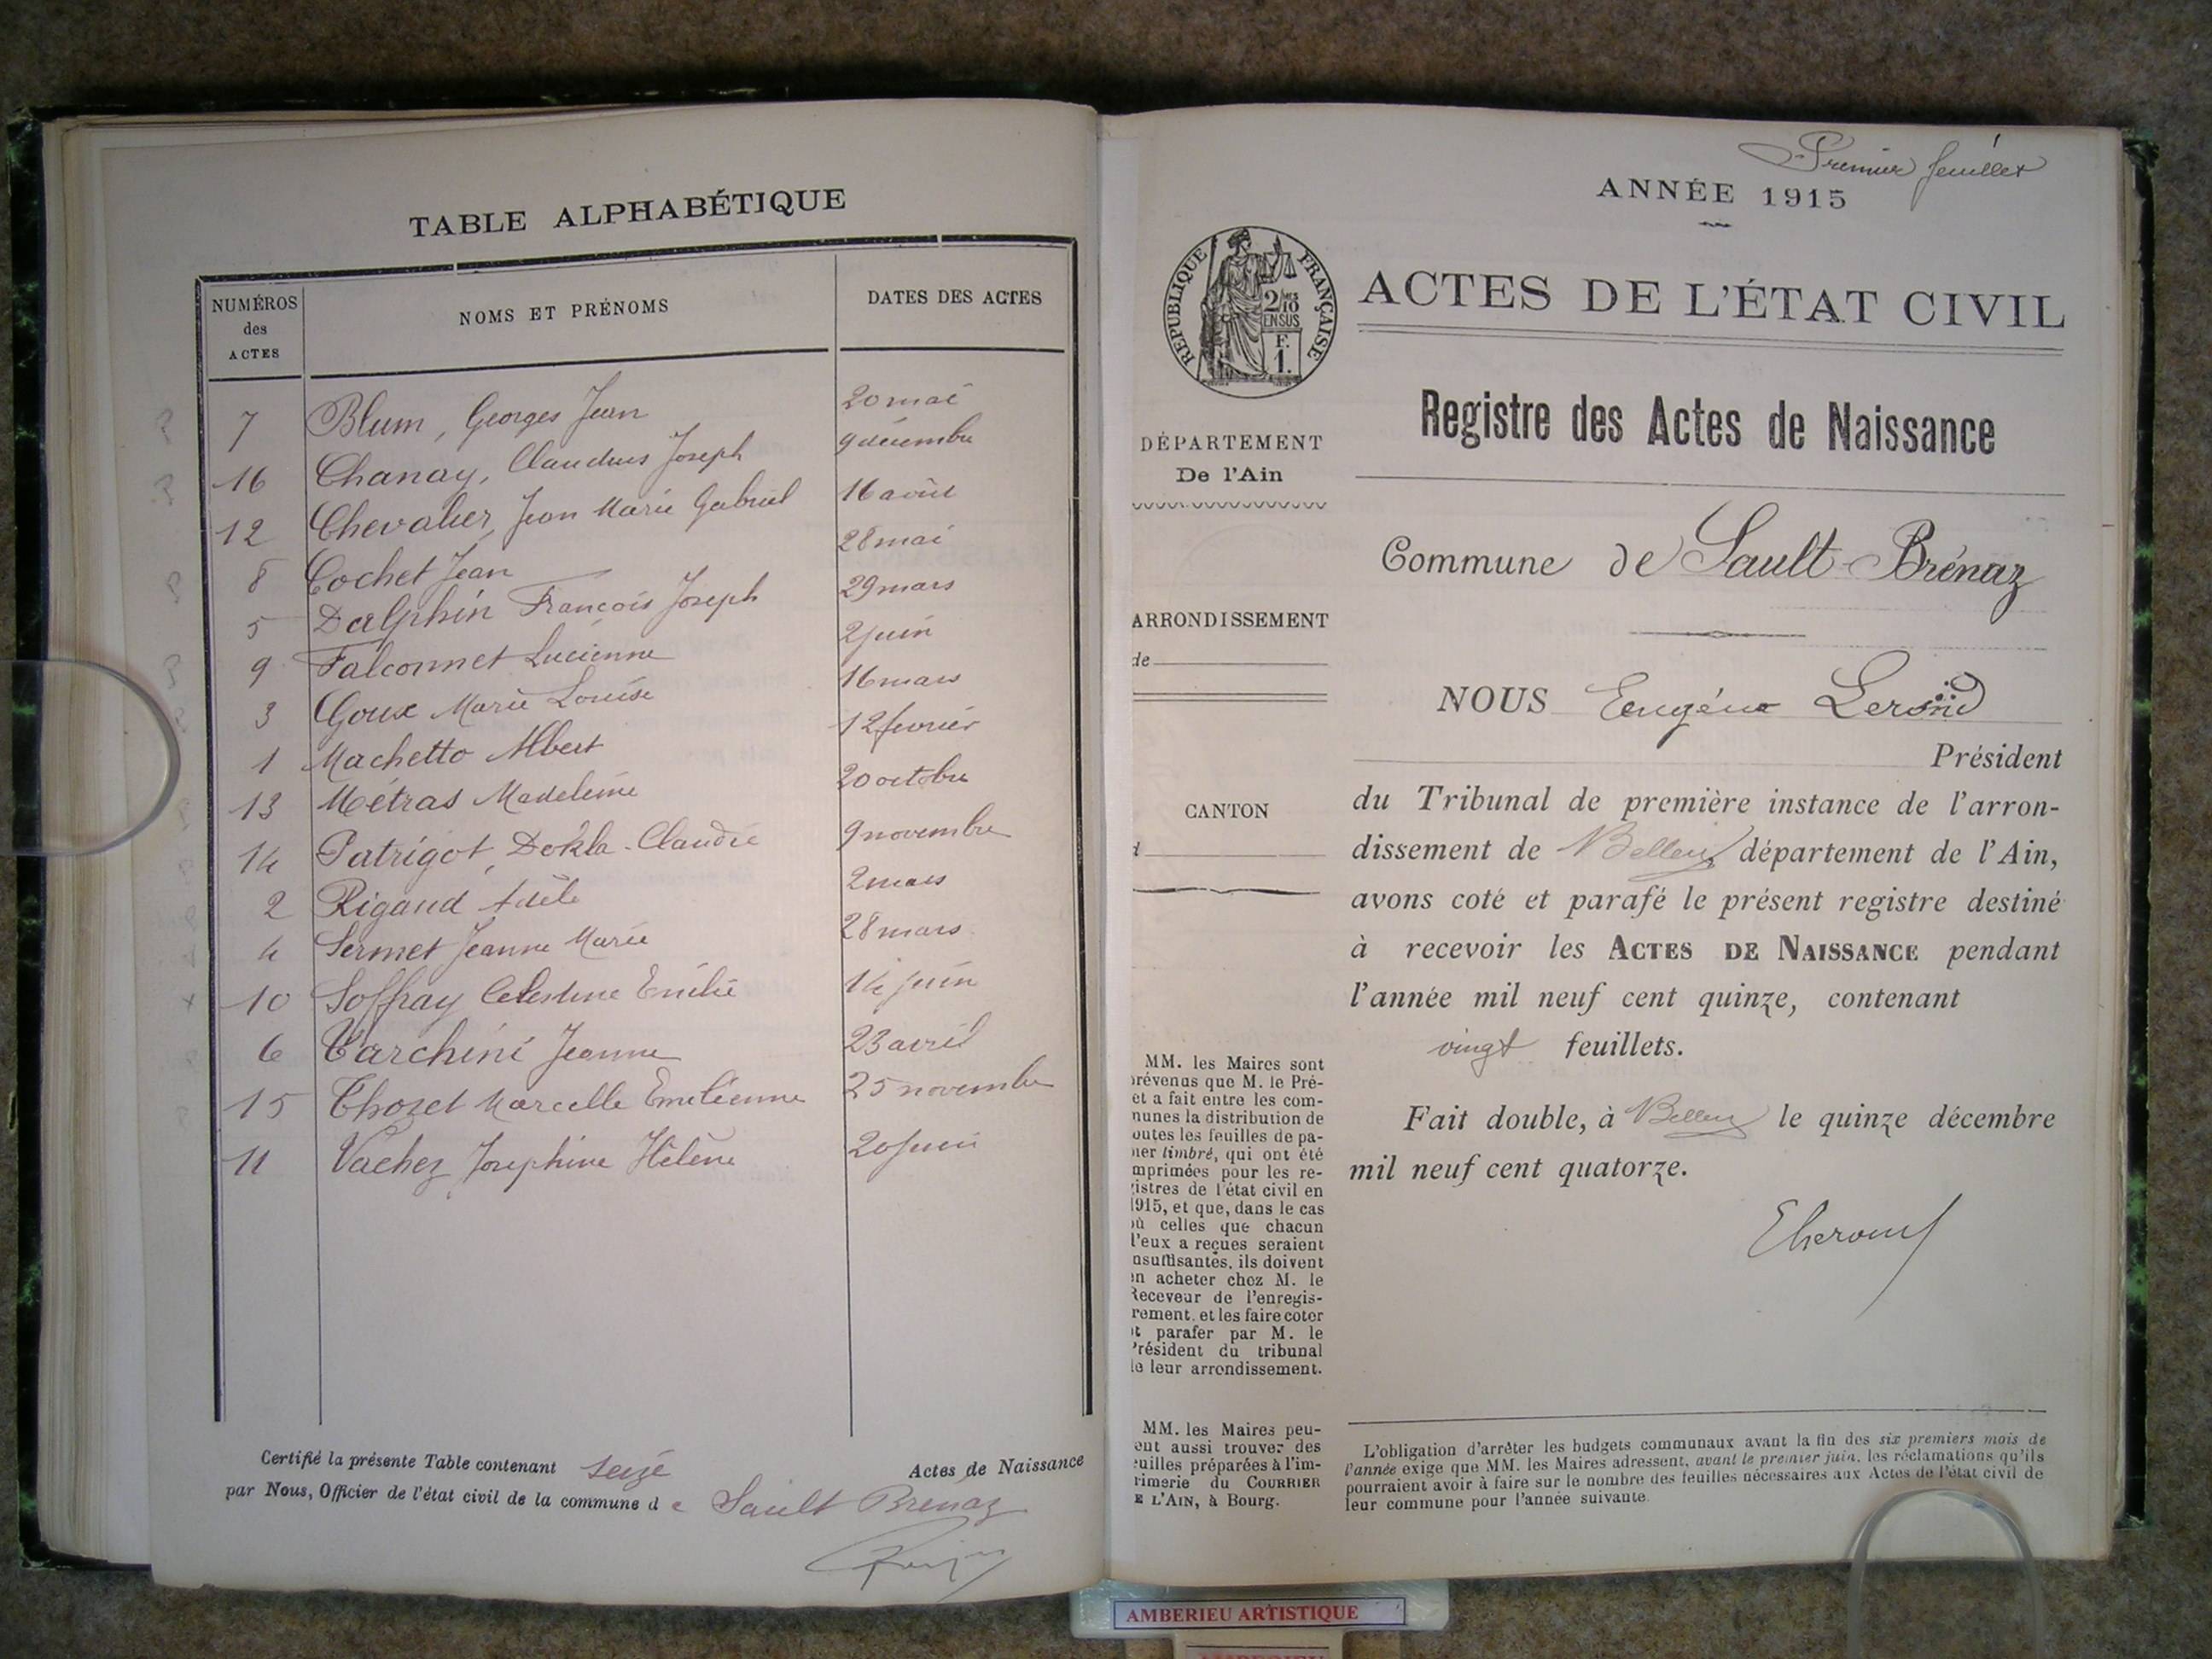 TABLE ALPHABÉTIQUE
NUMÉROS des ACTES
NOMS ET PRÉNOMS
DATES DES ACTES
7 Blum, Georges Jean 20 mai
16 Chanay, Claudius Joseph 9 décembre
12 Chevalier, Jean Marie Gabriel 16 août
8 Cochet Jean 28 mai
5 Dalphin François Joseph 29 mars
9 Falconnet Lucienne 2 juin
3 Goux Marie Louise 16 mars
1 Machetto Albert 12 fevrier
13 Métras Madeleine 20 octobre
14 Patrigot Claudie 9 novembre
2 Rigaud Adèle 2 mars
4 Sermet Jeanne Marie 28 mars
10 Soffray Celestine Emilie 14 juin
6 Tarchini Jeanne 23 avril
15 Thozet Marcelle Emilienne 25 novembre
11 Vachez Josephine Hélène 20 juin
Certifié la présente Table contenant seize Actes de Naissance
par Nous, Officier de l'état civil de la commune d e Sault Brenaz
Premier feuillet
ANNÉE 1915
RÉPUBLIQUE FRANÇAISE
2/10
EN SUS
F.
1.
ACTES DE L'ÉTAT CIVIL
Registre des Actes de Naissance
DÉPARTEMENT
De l'Ain
Commune de Sault-Brénaz
ARRONDISSEMENT
de
NOUS Eugène
Président
CANTON
du Tribunal de première instance de l'arron-
dissement de Belley département de l'Ain,
avons coté et parafé le présent registre destiné
à recevoir les ACTES DE NAISSANCE pendant
l'année mil neuf cent quinze, contenant
vingt feuillets.
Fait double, à Belley le quinze décembre
mil neuf cent quatorze.
MM. les Maires sont
révenus que M. le Pré-
et a fait entre les com-
munes la distribution de
outes les feuilles de pa-
ier timbré, qui ont été
mprimées pour les re-
istres de l'état civil en
1915, et que, dans le cas
ù celles que chacun
l'eux a reçues seraient
nsuffisantes, ils doivent
n acheter chez M. le
Receveur de l'enregis-
rement, et les faire coter
t parafer par M. le
Président du tribunal
e leur arrondissement.
MM. les Maires peu-
ent aussi trouver des
euilles préparées à l'im-
rimerie du COURRIER
E L'AIN, à Bourg.
L'obligation d'arrêter les budgets communaux avant la fin des six premiers mois de
l'année exige que MM. les Maires adressent, avant le premier juin, les réclamations qu'ils
pourraient avoir à faire sur le nombre des feuilles nécessaires aux Actes de l'état civil de
leur commune pour l'année suivante.
AMBERIEU ARTISTIQUE
AMBERIEU